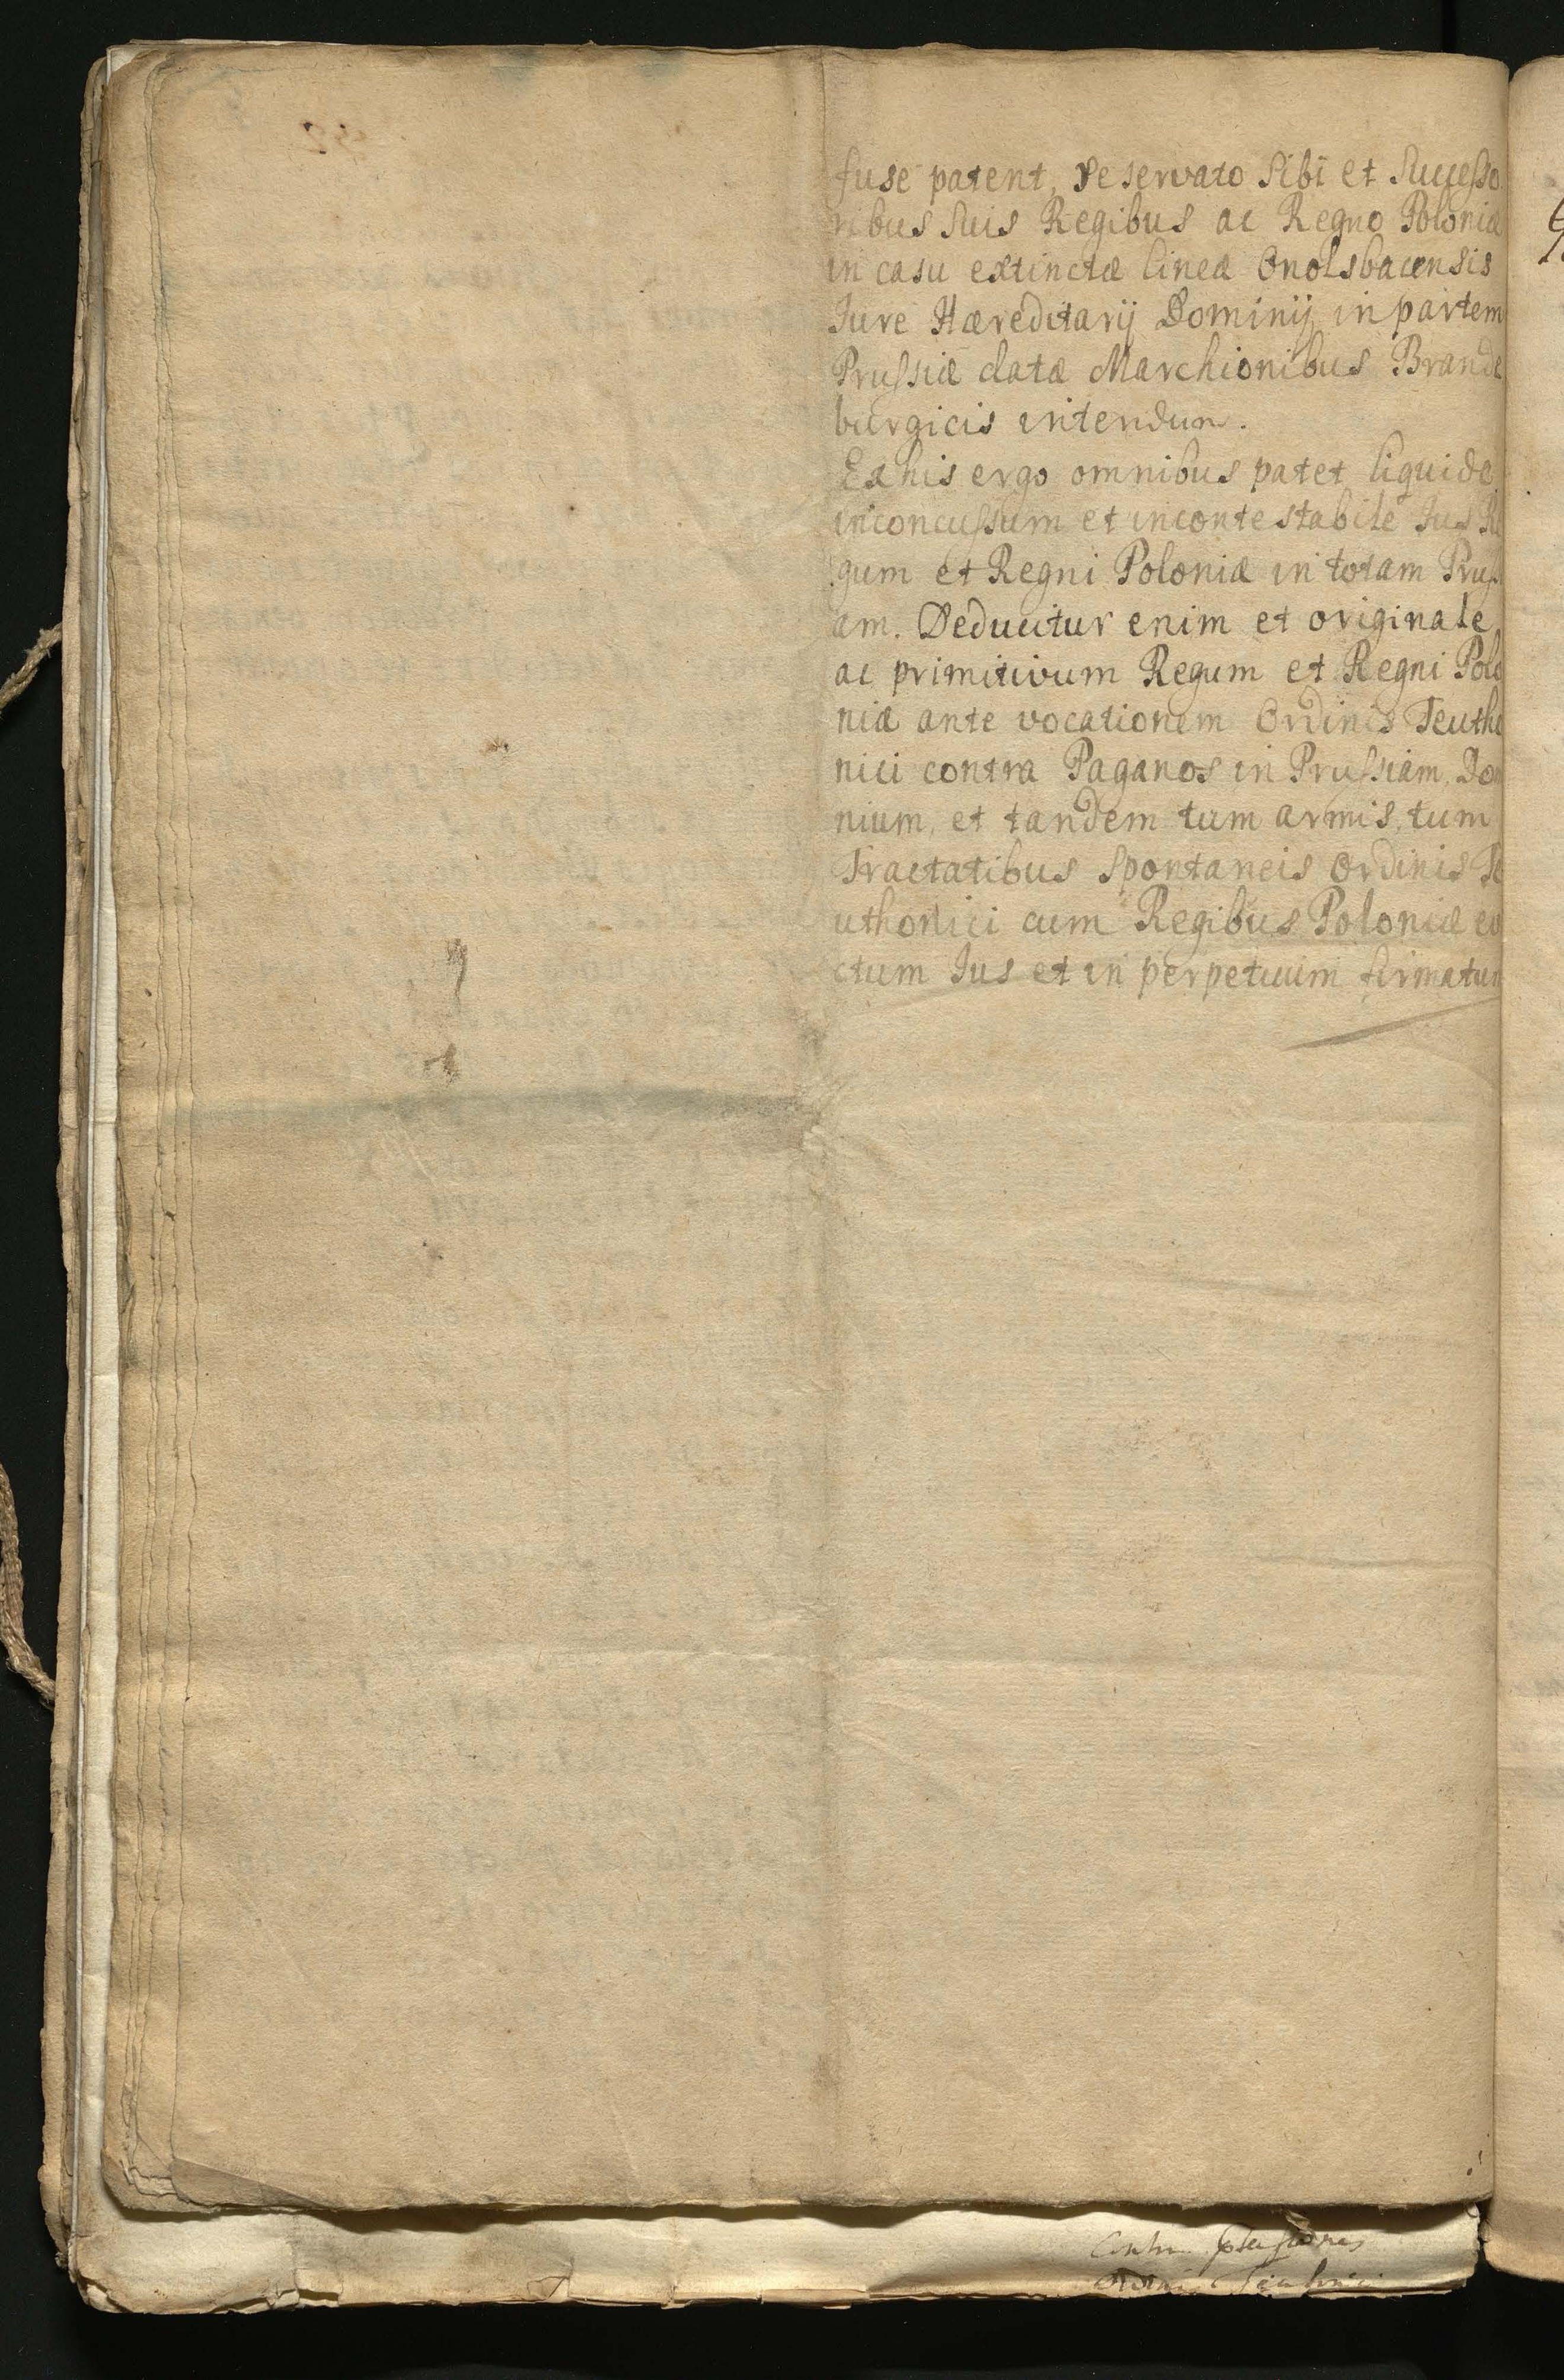 fuse patent, reservato Sibi et Successo
ribus Suis Regibus ac Regno Poloniæ
in casu extinctæ lineæ Onolsbacensis
Jure Hæreditarij Dominij in partem
Prussiæ datæ Marchionibus Brande
burgicis intendum.
Ex his ergo omnibus patet liquide
inconcussum et incontestabile Jus Re
gum et Regni Poloniæ in totam Pruss
am. Deducitur enim et originale
ac primitivum Regum et Regni Polo
niæ ante vocationem Ordinis Teutho
nici contra Paganos in Prussiam, Do
nium, et tandem tum armis, tum
Tractatibus Spontaneis Ordinis Te
uthonici cum Regibus Poloniæ ev
ctum Jus et in perpetuum firmatum